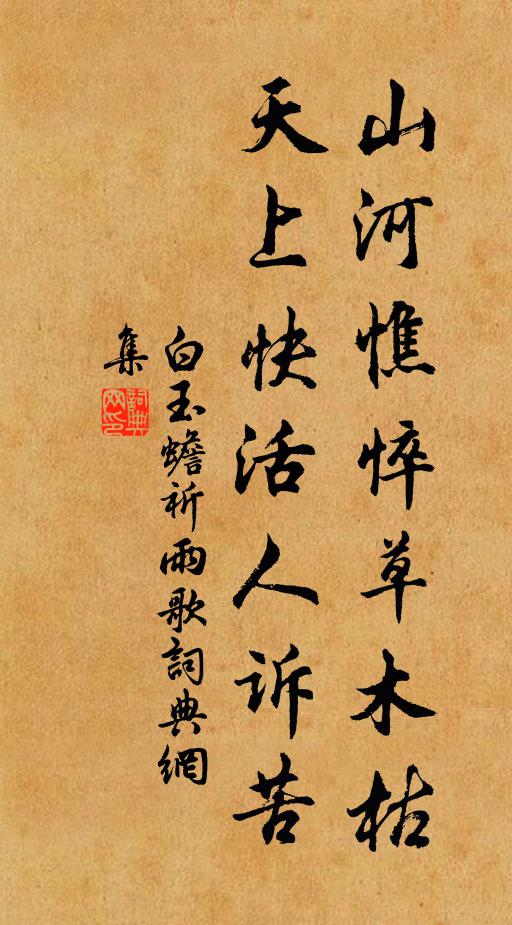 山河憔悴草木枯
天上快活人诉苦
白玉蟾祈雨歌詞典網
集
詞典
网印